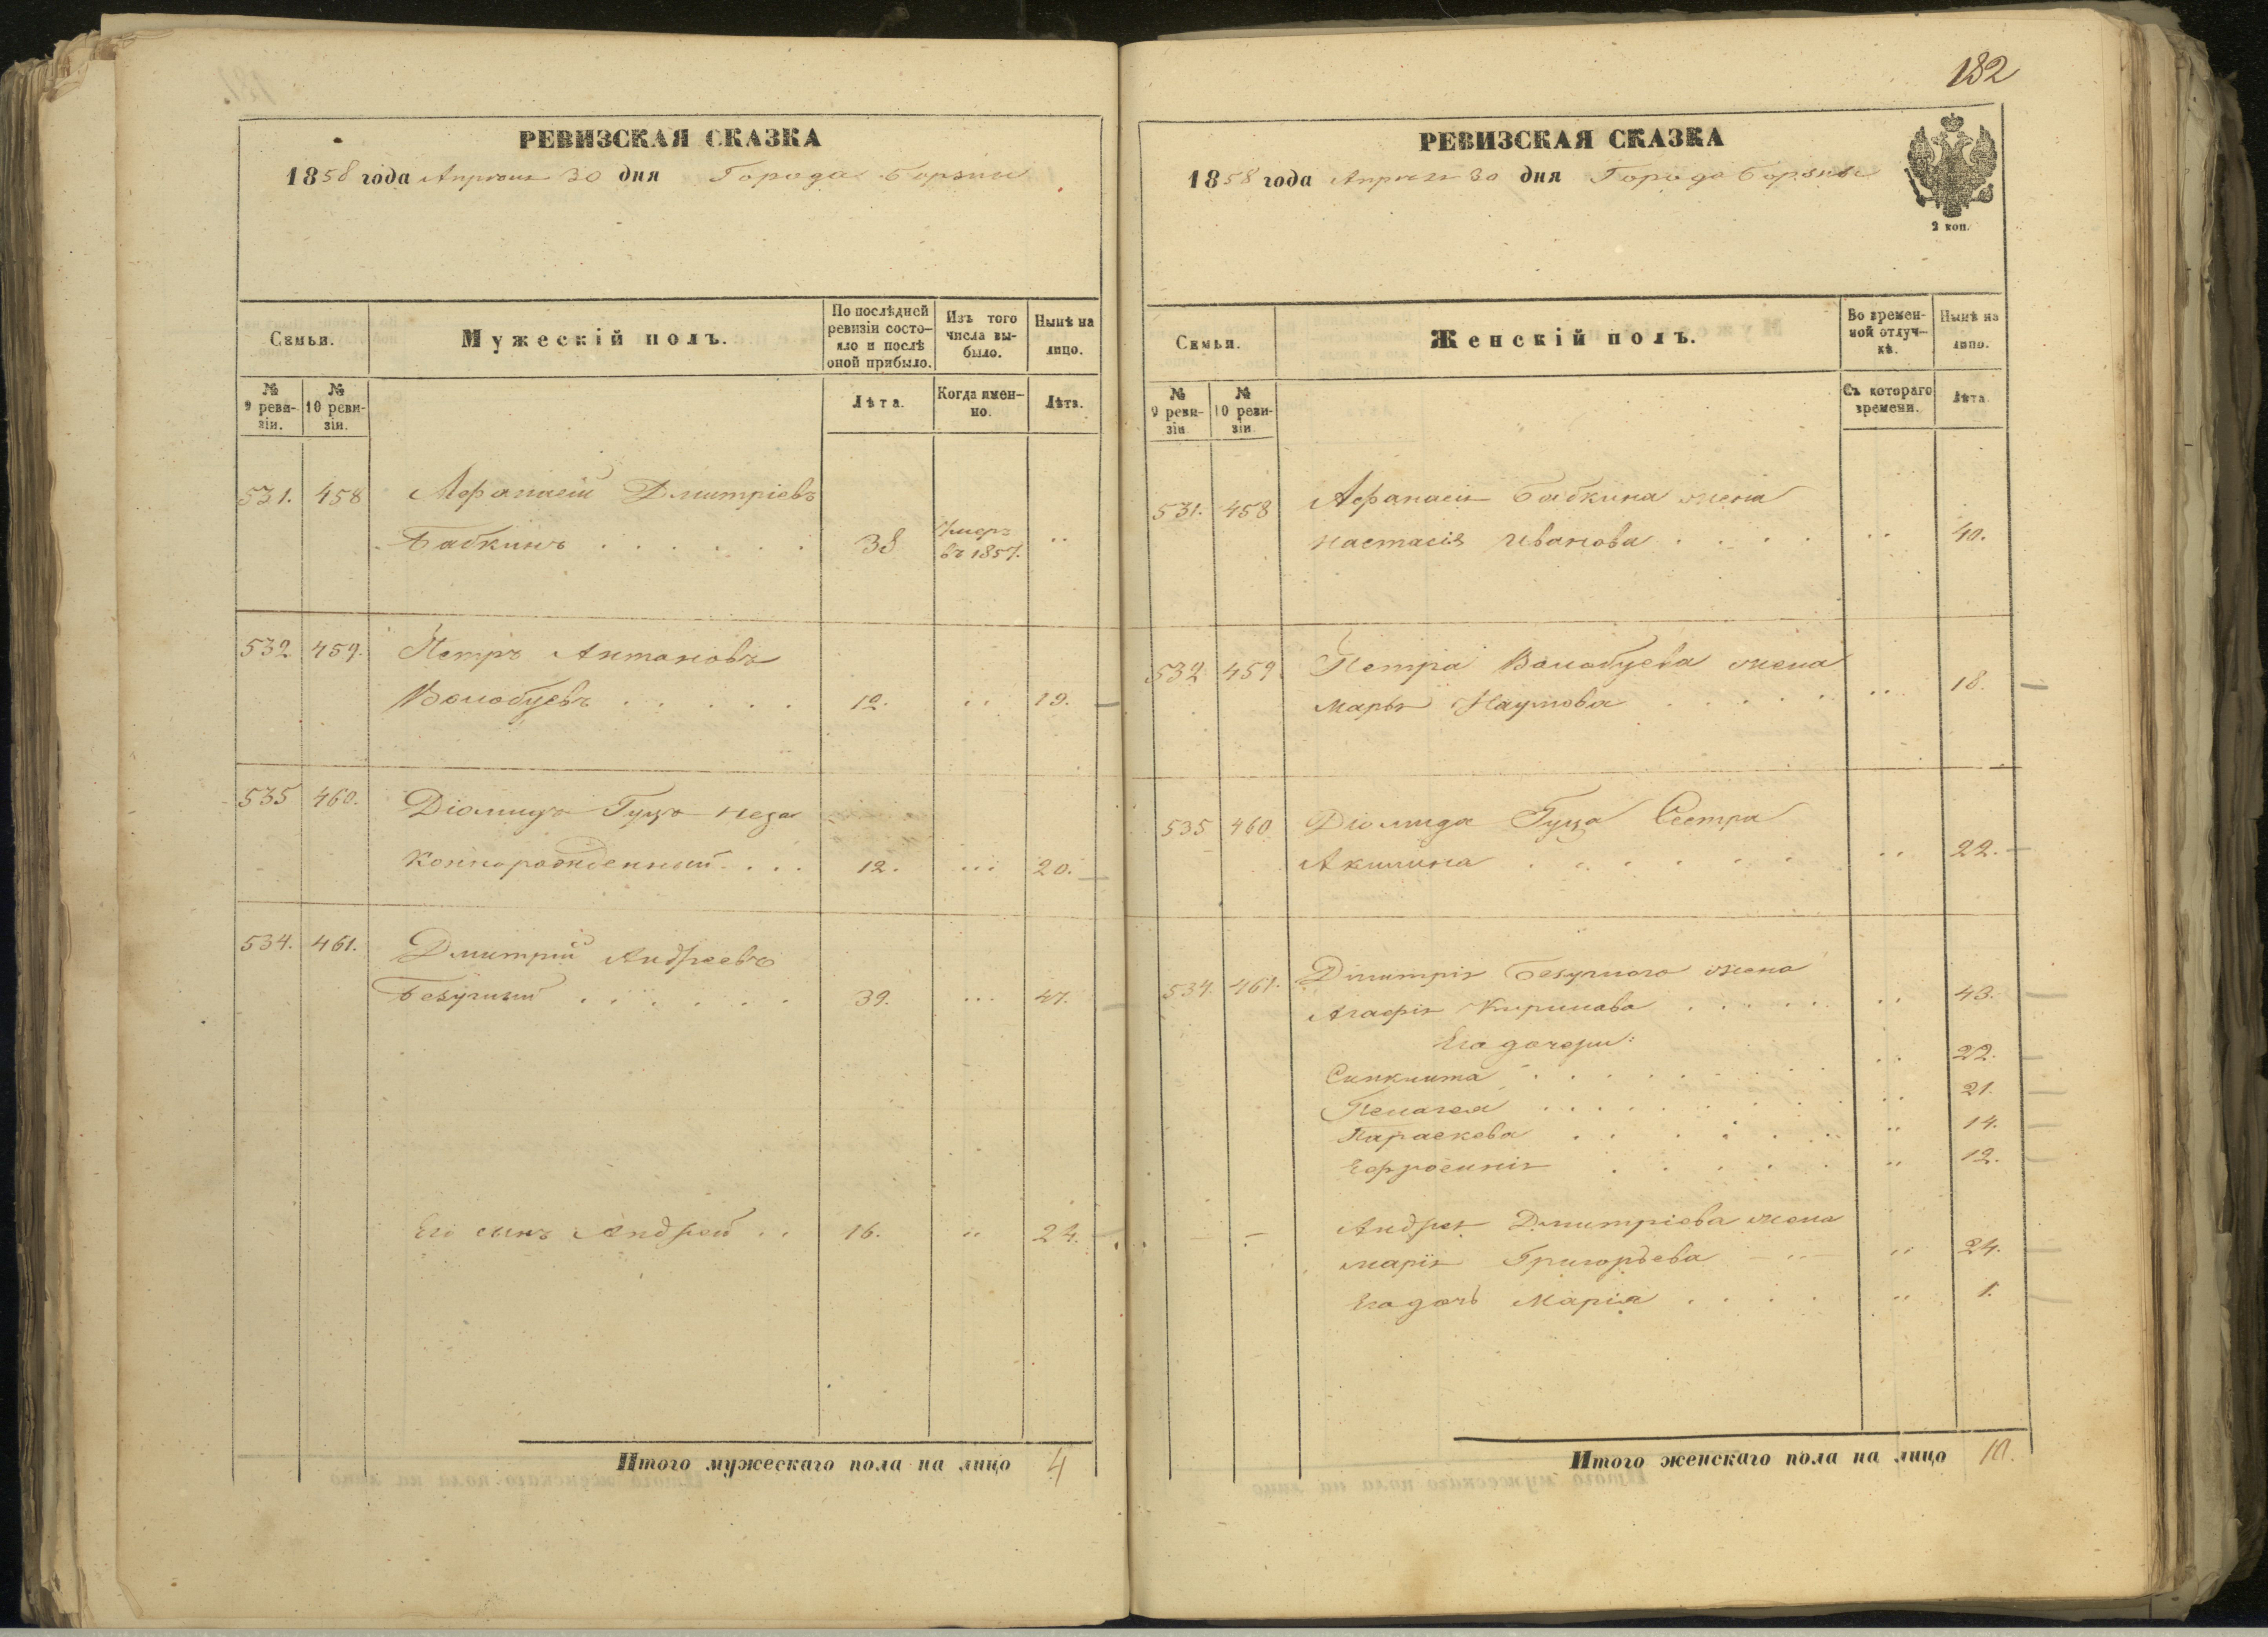 РЕВИЗСКАЯ СКАЗКА
1858 года Апреля 30 дня Города Борзны
Семьи.
Мужескій полъ.
По послѣдней ревизіи состояло и послѣ оной прибыло.
Изъ того числа выбыло.
Нынѣ на лицо.
№ 9 ревизіи.
№ 10 ревизіи.
Лѣта.
Когда именно.
Лѣта.
531. 458 Афанасій Дмитріевъ
Бабкинъ . . . . . . 38 Умеръ въ 1857. ..
532 459. Петръ Антоновъ
Волобуевъ . . . . . 12. .. 19.
535 460. Діомидъ Гуцъ неза
коннорожденный . . . 12. ... 20.
534. 461. Дмитрій Андреевъ
Безумный . . . . . . 39. ... 47.
Его сынъ Андрей . . 16. .. 24.
Итого мужескаго пола на лицо 4
182
РЕВИЗСКАЯ СКАЗКА
1858 года Апреля 30 дня Города Борзны
2 коп.
Семьи.
Женскій полъ.
Во временной отлучкѣ.
Нынѣ на лицо.
№ 9 ревизіи
№ 10 ревизіи
Съ котораго времени.
Лѣта
531. 458 Афанасія Бабкина жена
Настасія Иванова . . . . .. 40.
532 459 Петра Волобуева жена
Марья Наумова . . . . . .. 18.
535 460 Діомида Гуца Сестра
Акилина . . . . . . .. 22.
534. 461. Дмитрія Безумнаго жена
Агафія Кирилова . . . . . .. 43.
Его дочери:
Синклита . . . . . . . .. 22.
Пелагея . . . . . . . .. 21.
Параскева . . . . . . .. 14.
Ефросинія . . . . . .. 12.
Андрея Дмитріева жена
Марія Григорьева .. 24.
Его дочь Марія . . . . .. 1.
Итого женскаго пола на лицо 10.